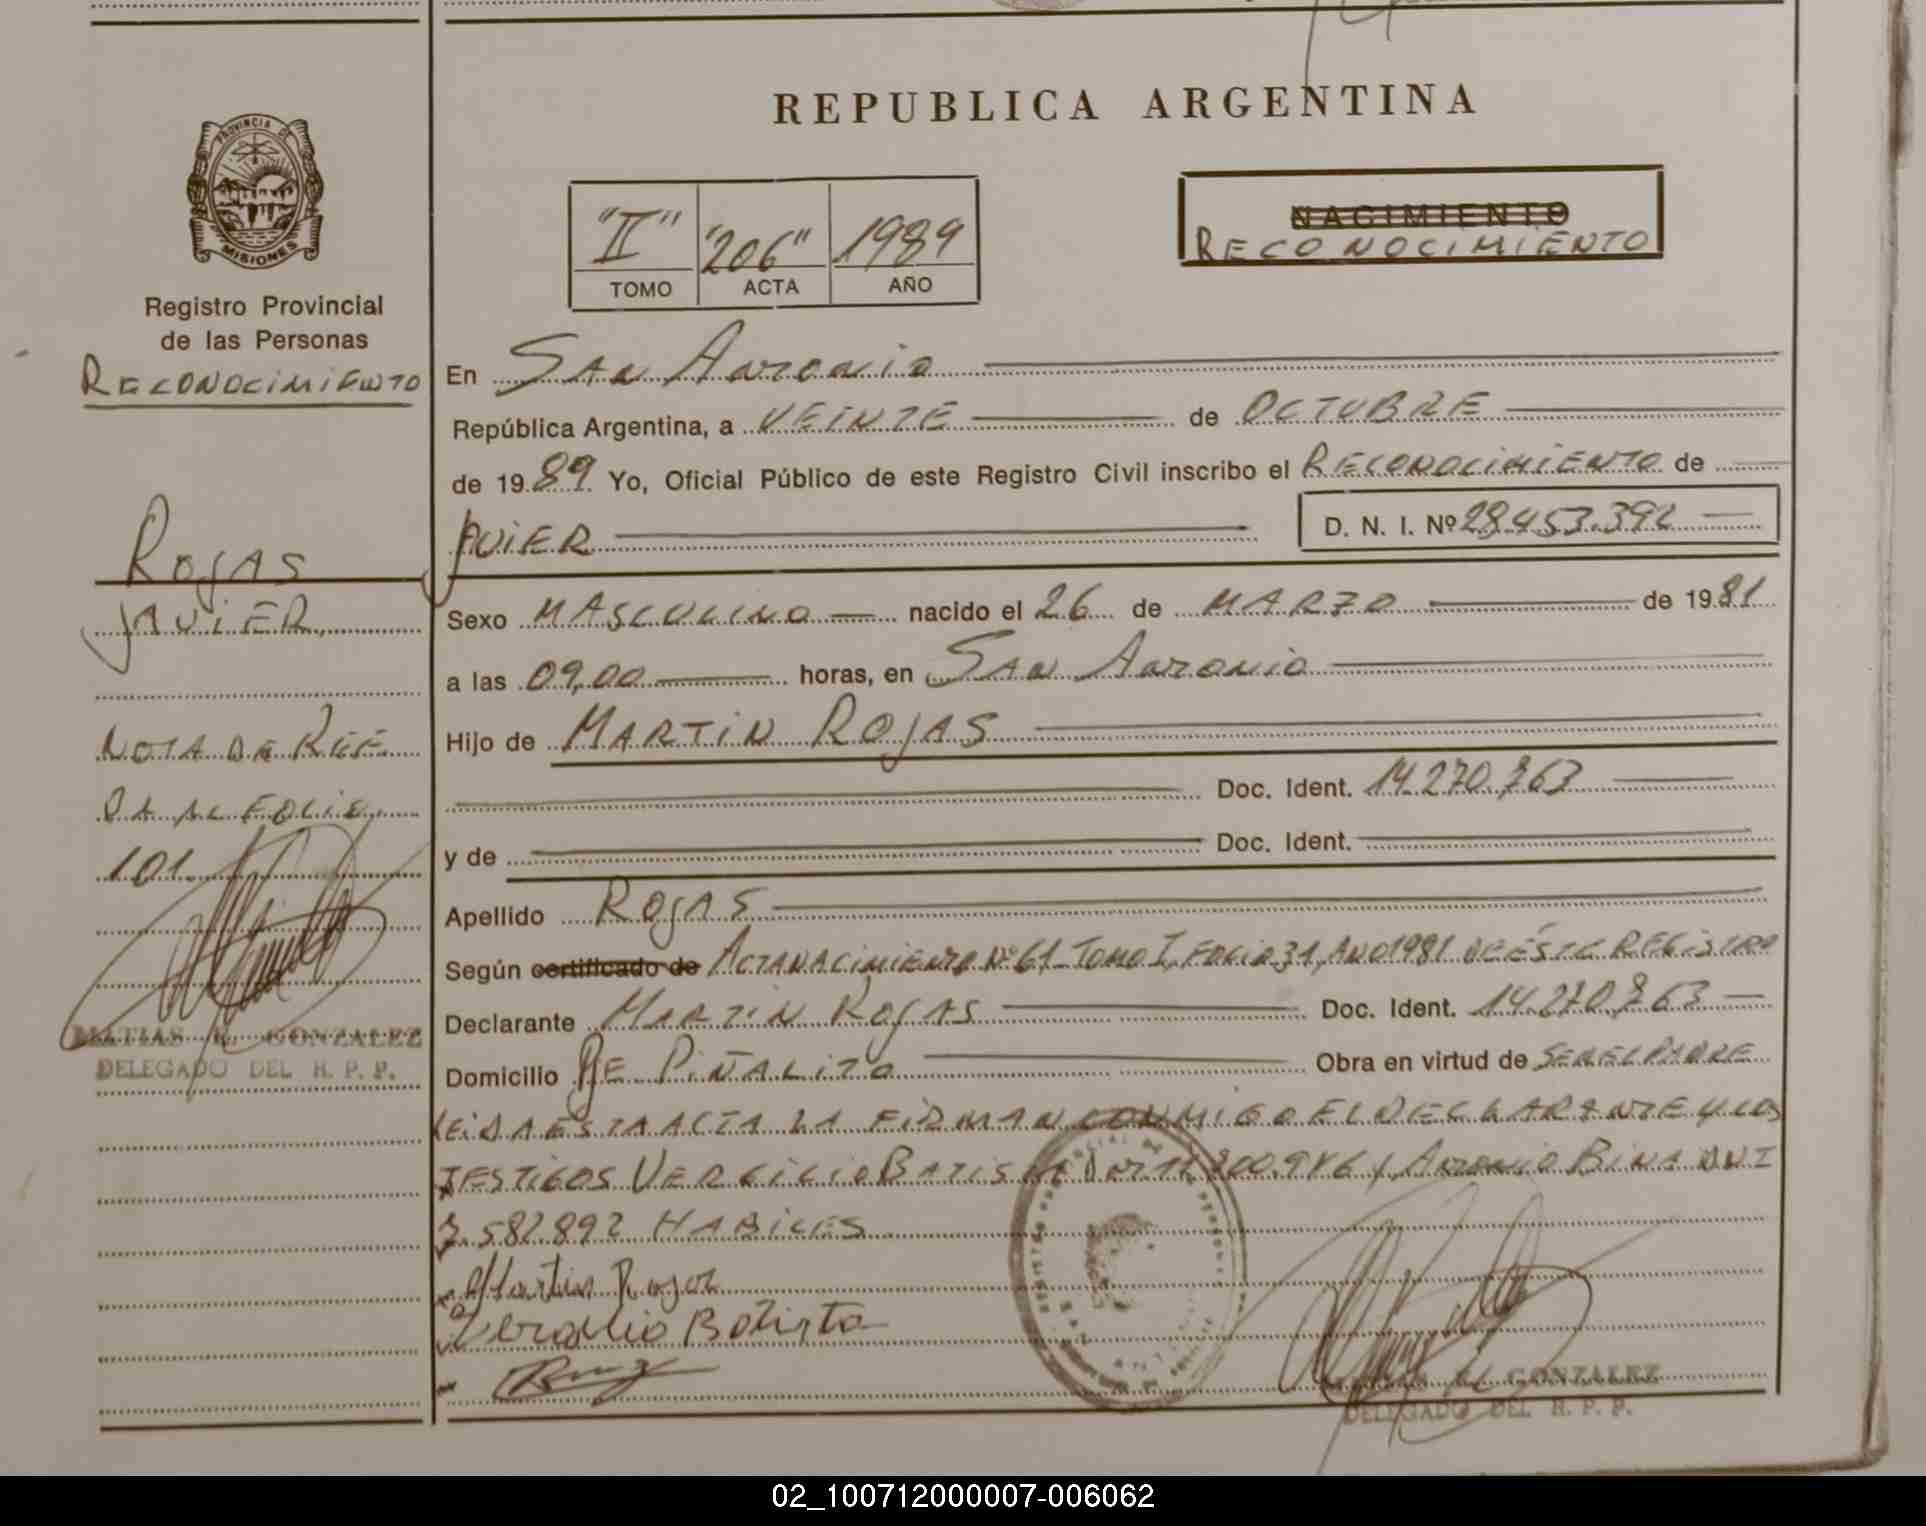 REPUBLICA ARGENTINA
PROVINCIA DE
MISIONES
Registro Provincial
de las Personas
RECONOCIMIENTO
"II" "206" 1989
TOMO ACTA AÑO
NACIMIENTO
RECONOCIMIENTO
En SAN ANTONIO
República Argentina, a VEINTE de OCTUBRE
de 1989 Yo, Oficial Público de este Registro Civil inscribo el RECONOCIMIENTO de
JAVIER D. N. I. Nº 28.453.392
ROJAS
JAVIER
Sexo MASCULINO nacido el 26 de MARZO de 1981
a las 09,00 horas, en SAN ANTONIO
Hijo de MARTIN ROJAS
Doc. Ident. 14.270.763
y de Doc. Ident.
Apellido ROJAS
Según certificado de ACTA NACIMIENTO Nº 61 TOMO I, FOLIO 31, AÑO 1981 DE ÉSTE REGISTRO
Declarante MARTIN ROJAS Doc. Ident. 14.270.763
Domicilio PJE PIÑALITO Obra en virtud de SER EL PADRE
LEIDA ESTA ACTA LA FIRMAN CONMIGO EL DECLARANTE Y LOS
TESTIGOS VERGILIO BATISTA DNI Y ANTONIO BINA DNI
7.582.892 HABILES
Martin Rojas
Batista
NOTA DE REF
AL FOLIO
101
MATIAS GONZALEZ
DELEGADO DEL R. P. P.
GONZALEZ
DELEGADO DEL R. P. P.
02_100712000007-006062